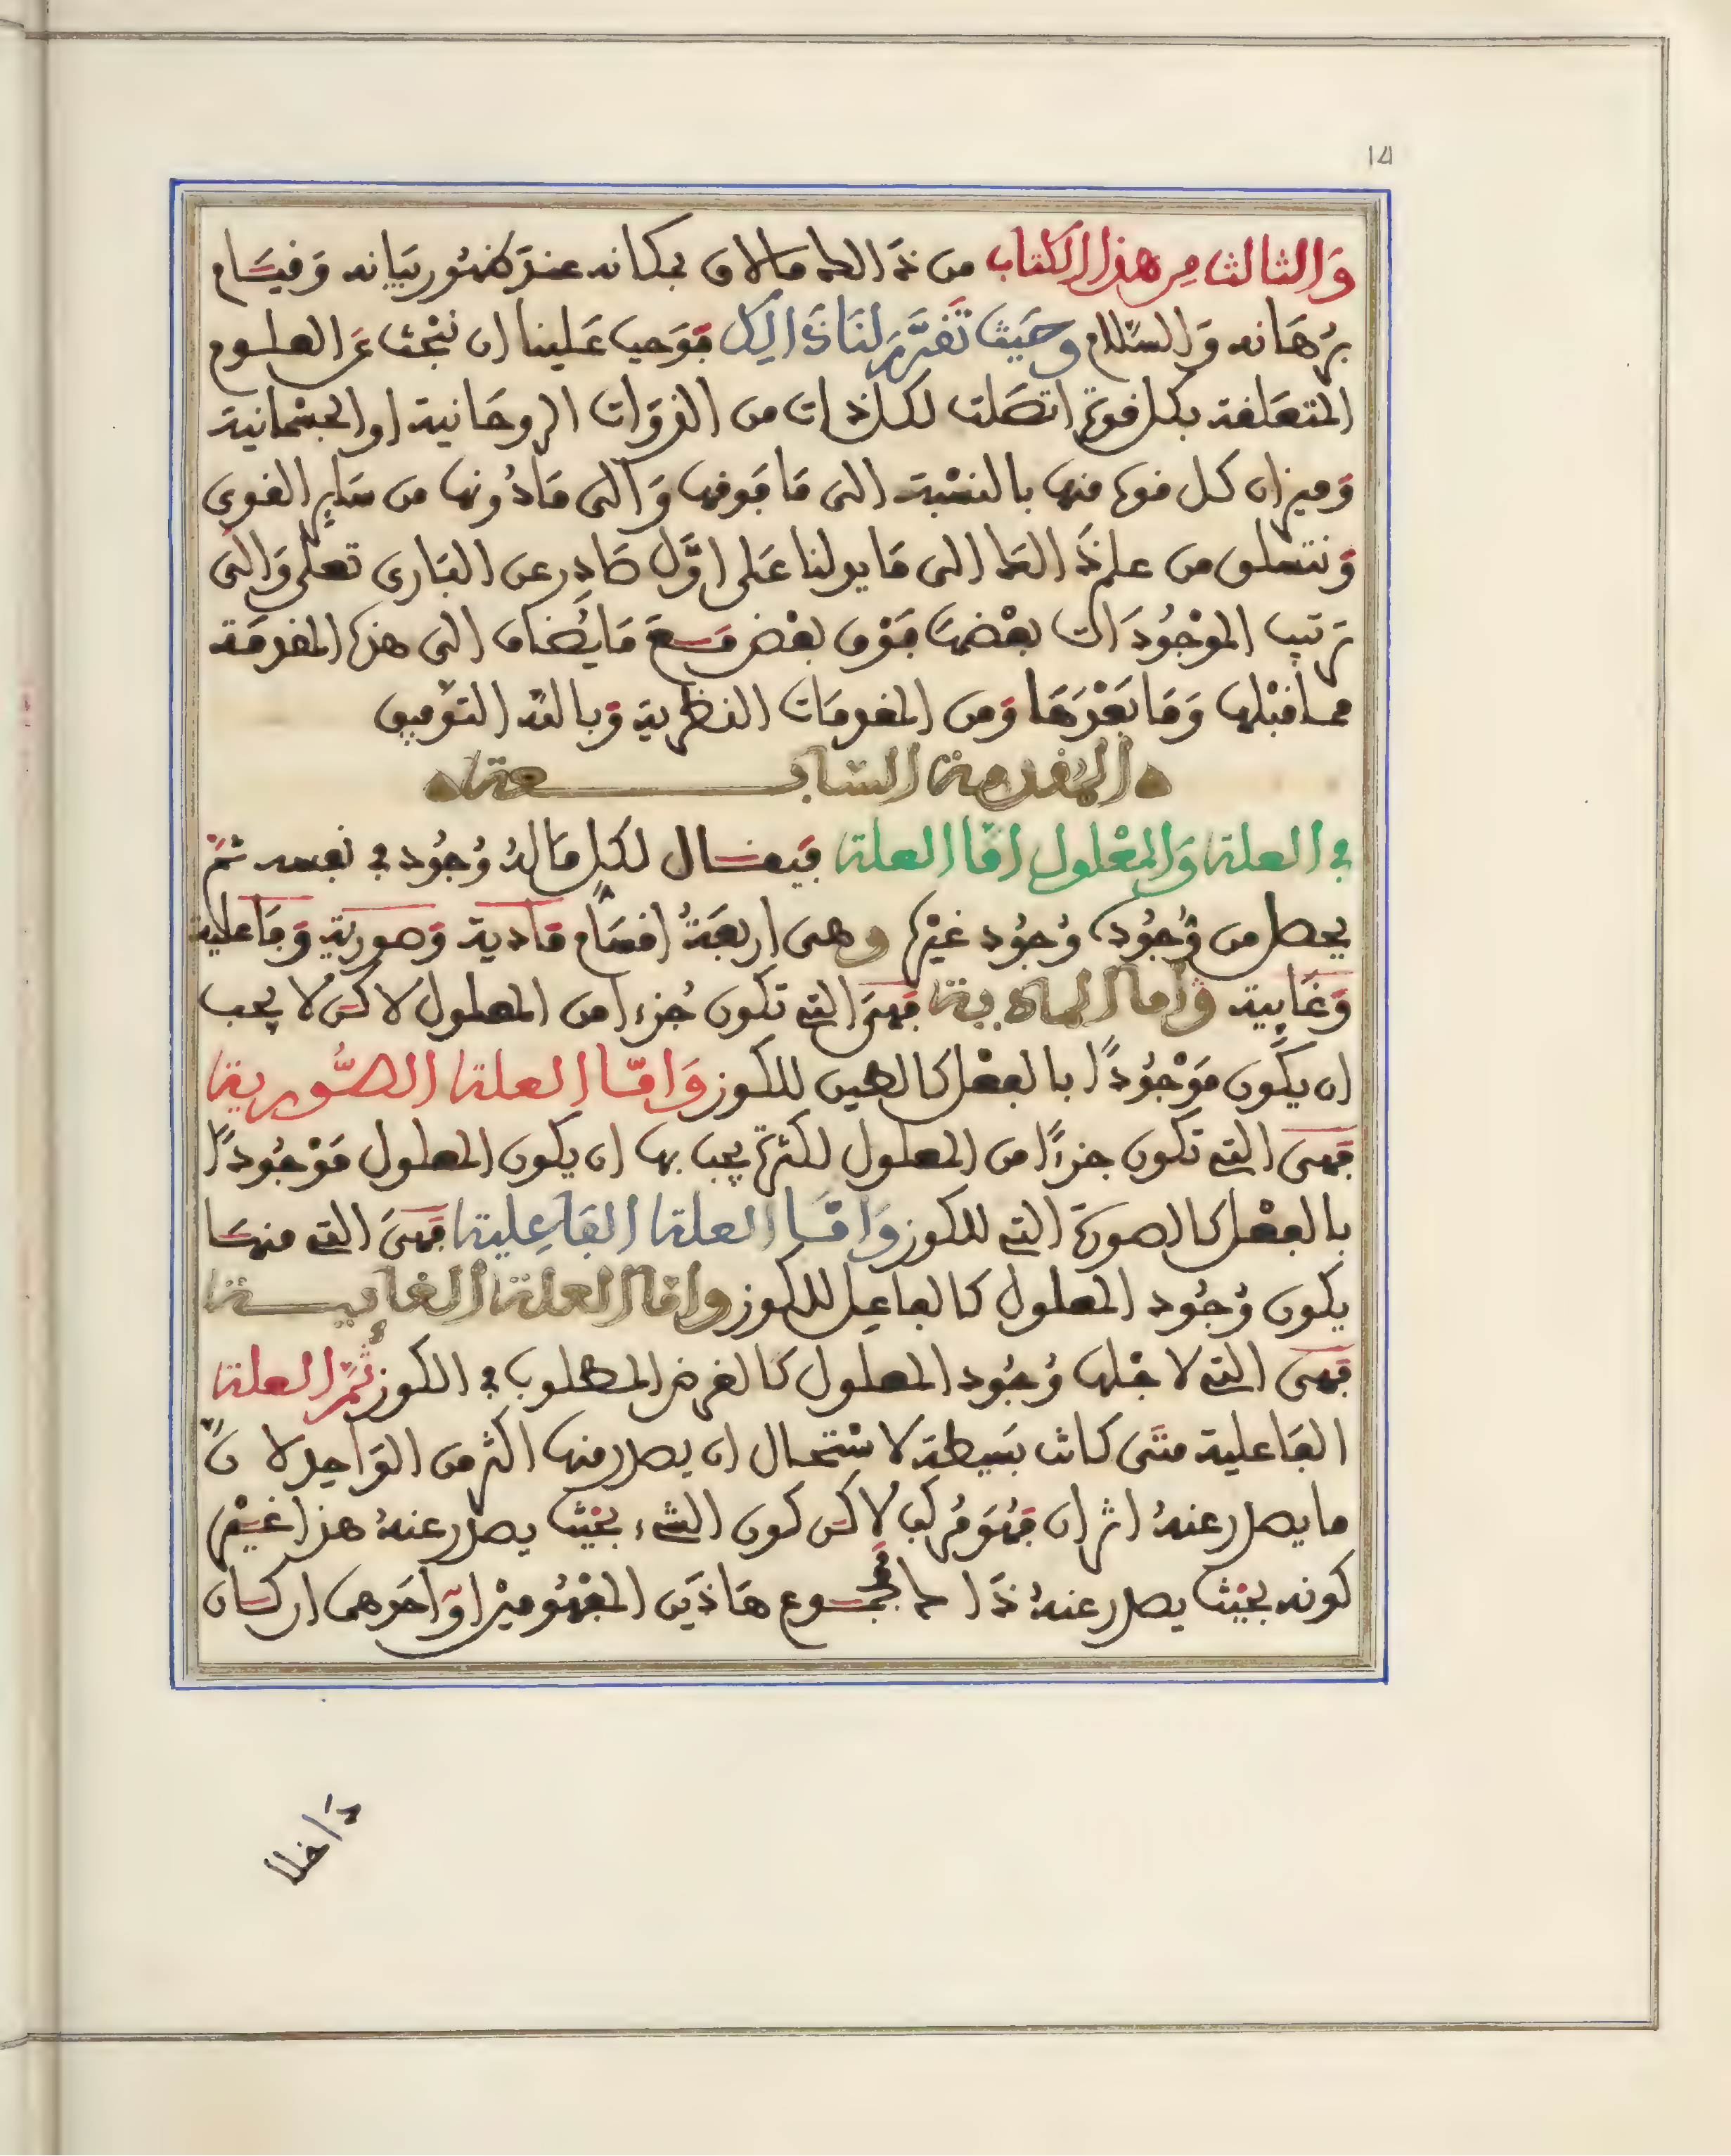 14
وَالثالث من هذا الكتاب من ذَالك مالاق بمكانه عند ظهور بيانه وَقيَام
بُرهَانه وَالسّلام وحَيث تَقرَّر لنَا ذَالِك فوَجب عَلينا ان نبْحث عَن العلوم
المتعَلقة بكل قوة اتصَلت لكل ذات من الذوَات الروحَانية او الجسْمَانية
وَميزان كل قوة منها بالنسْبة الى مَا فوقها وَالى مَا دُونها من سَايِر القوى
وَنتسلق من علم ذَالك الى مَا يدلنا عَلى اوَّل صَادِر عن البَارى تعلى وَالى
ترتيب الموْجُودَات بعْضهَا فوْق بعْض مَع مَا يُضاف الى هذه المقدمَة
مما قبْلها وَمَا بَعْدَهَا وَمن المقدمَات النظرية وَبالله التوْفيق
المقدمة السابعة
في العلة وَالمعْلول امّا العلة فيقال لكل مَالهُ وُجُود في نفسه ثمَّ
يحصل من وُجُودِه وُجُود غيْره وهى اربعَةُ اقسَام مَادية وَصورية وَفَاعلية
وَغَايية وَاما المادية فهىَ التى تكون جُزءا من المعلول لاكن لا يجب
ان يكون مَوْجُودًا بالفعْل كالطين للكوز وَامّا العلة الصُّورية
فهىَ التى تكون جزءًا من المعلول لكنه يجب بها ان يكون المعلول مَوْجُودًا
بالفعْل كالصورَة التى للكوز وَامَّا العلة الفَاعِلية فهىَ التى منهَا
يكون وُجُود المعلول كالفاعِل للكوز وَامّا العلة الغايية
فهىَ التى لاجْلها وُجُود المعلول كالغرض المطلوب في الكوز ثمَّ العلة
الفَاعلية متَى كانت بَسِيطة لاسْتحال ان يصدر منها اكثر من الوَاحِد لانَّ
ما يصدر عنهُ اثران فهُوَ مُركب لاكن كون الشىء بحَيْث يصدر عنهُ هذا غيْر
كونه بحَيْث يصدر عنهُ ذَالك فمجموع هَاذَين المفهُوميْن اوَ احَدهمَا ان كان
دَاخلا